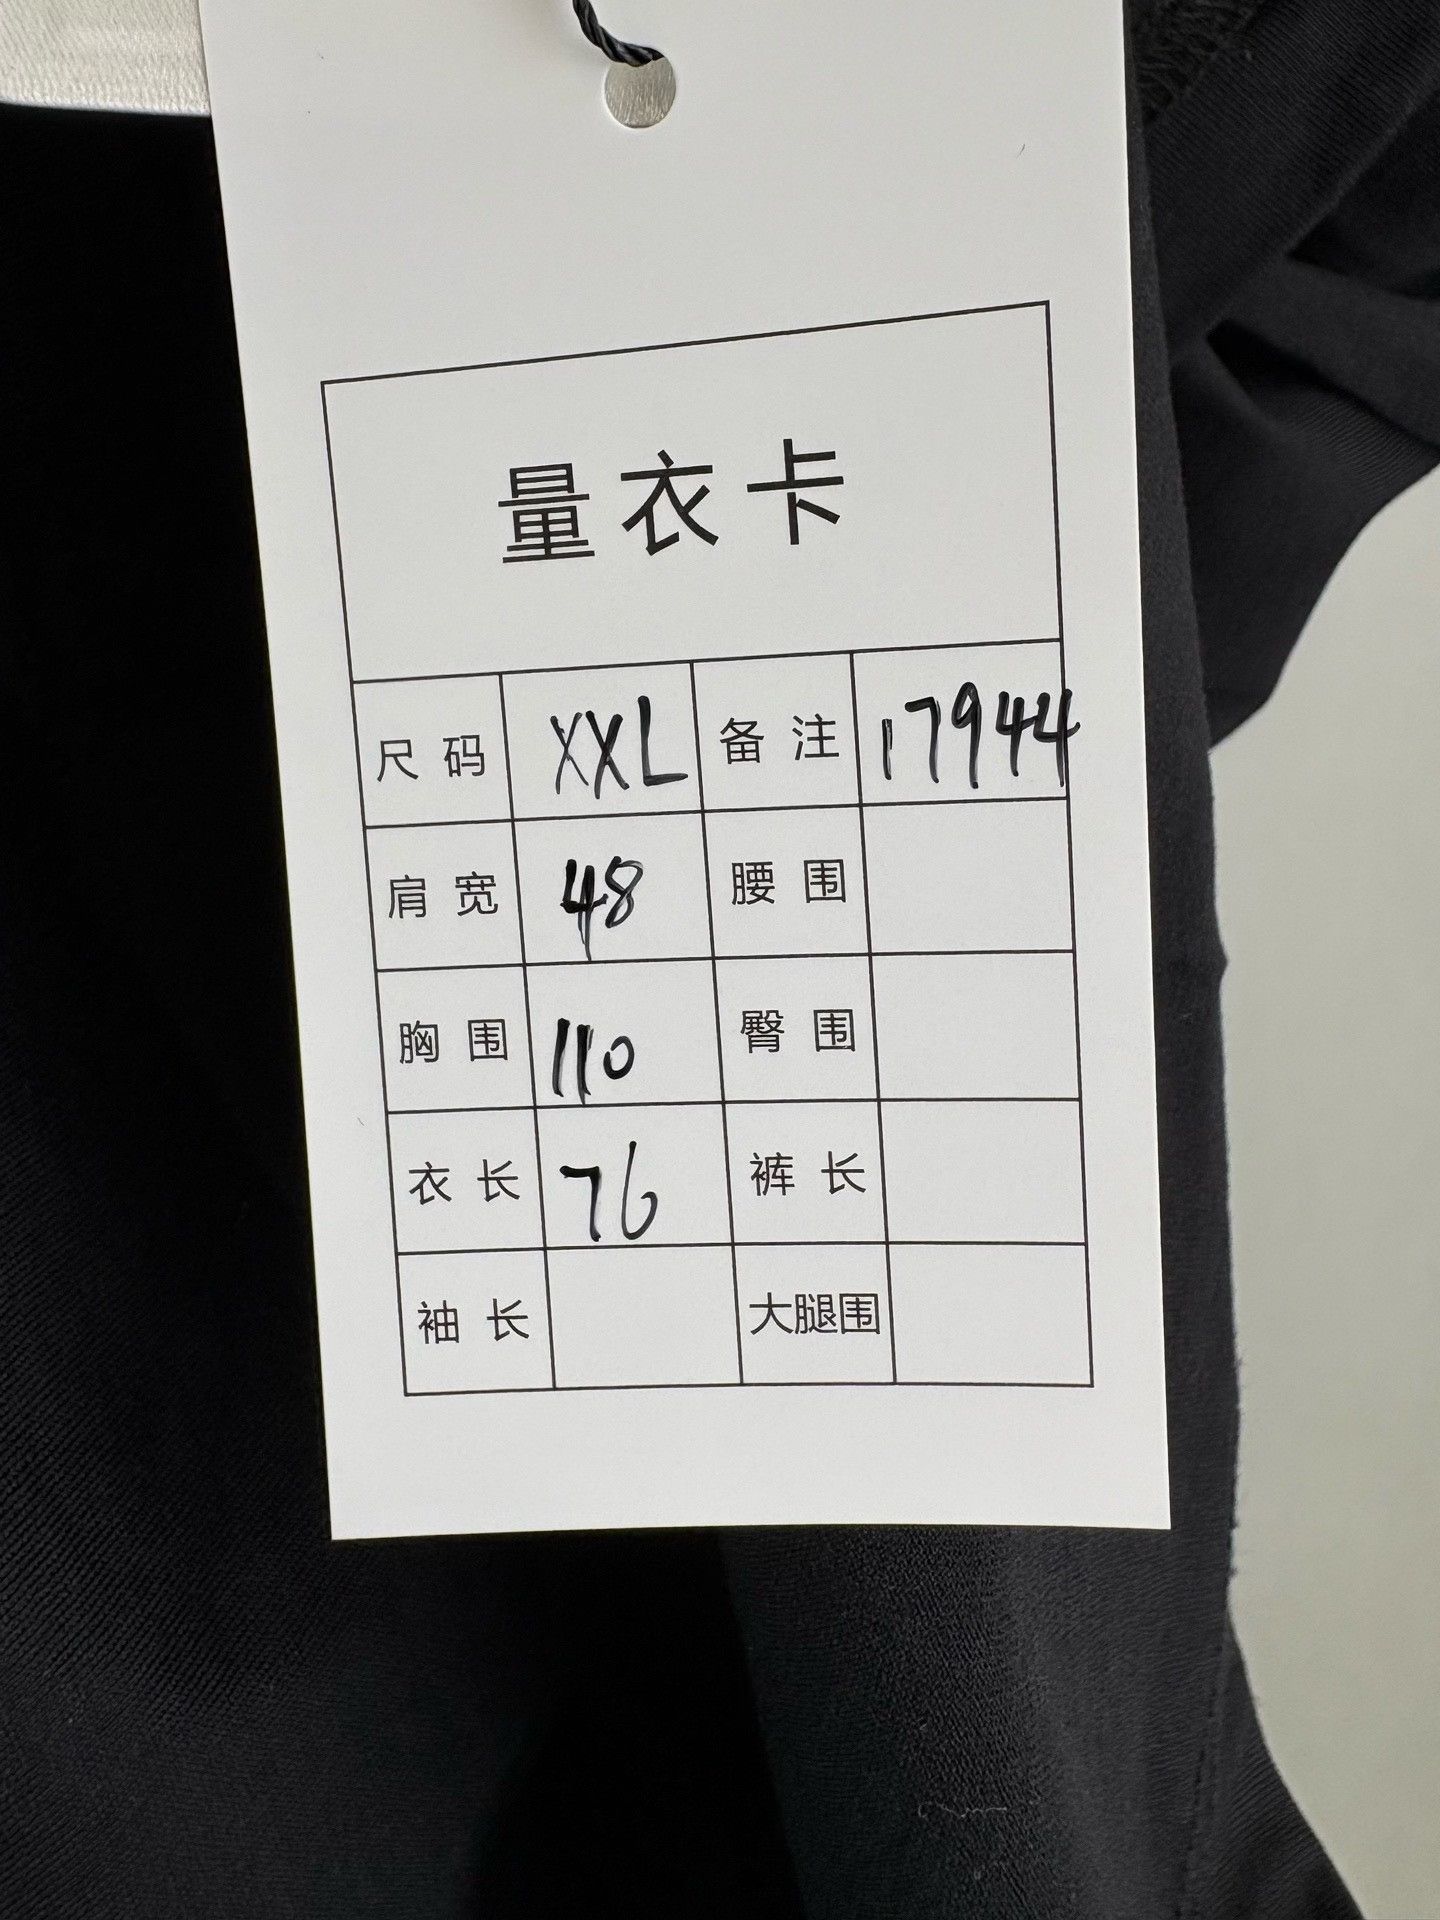 量衣卡
尺码 XXL 备注 17944
肩宽 48 腰围
胸围 110 臀围
衣长 76 裤长
袖长 大腿围